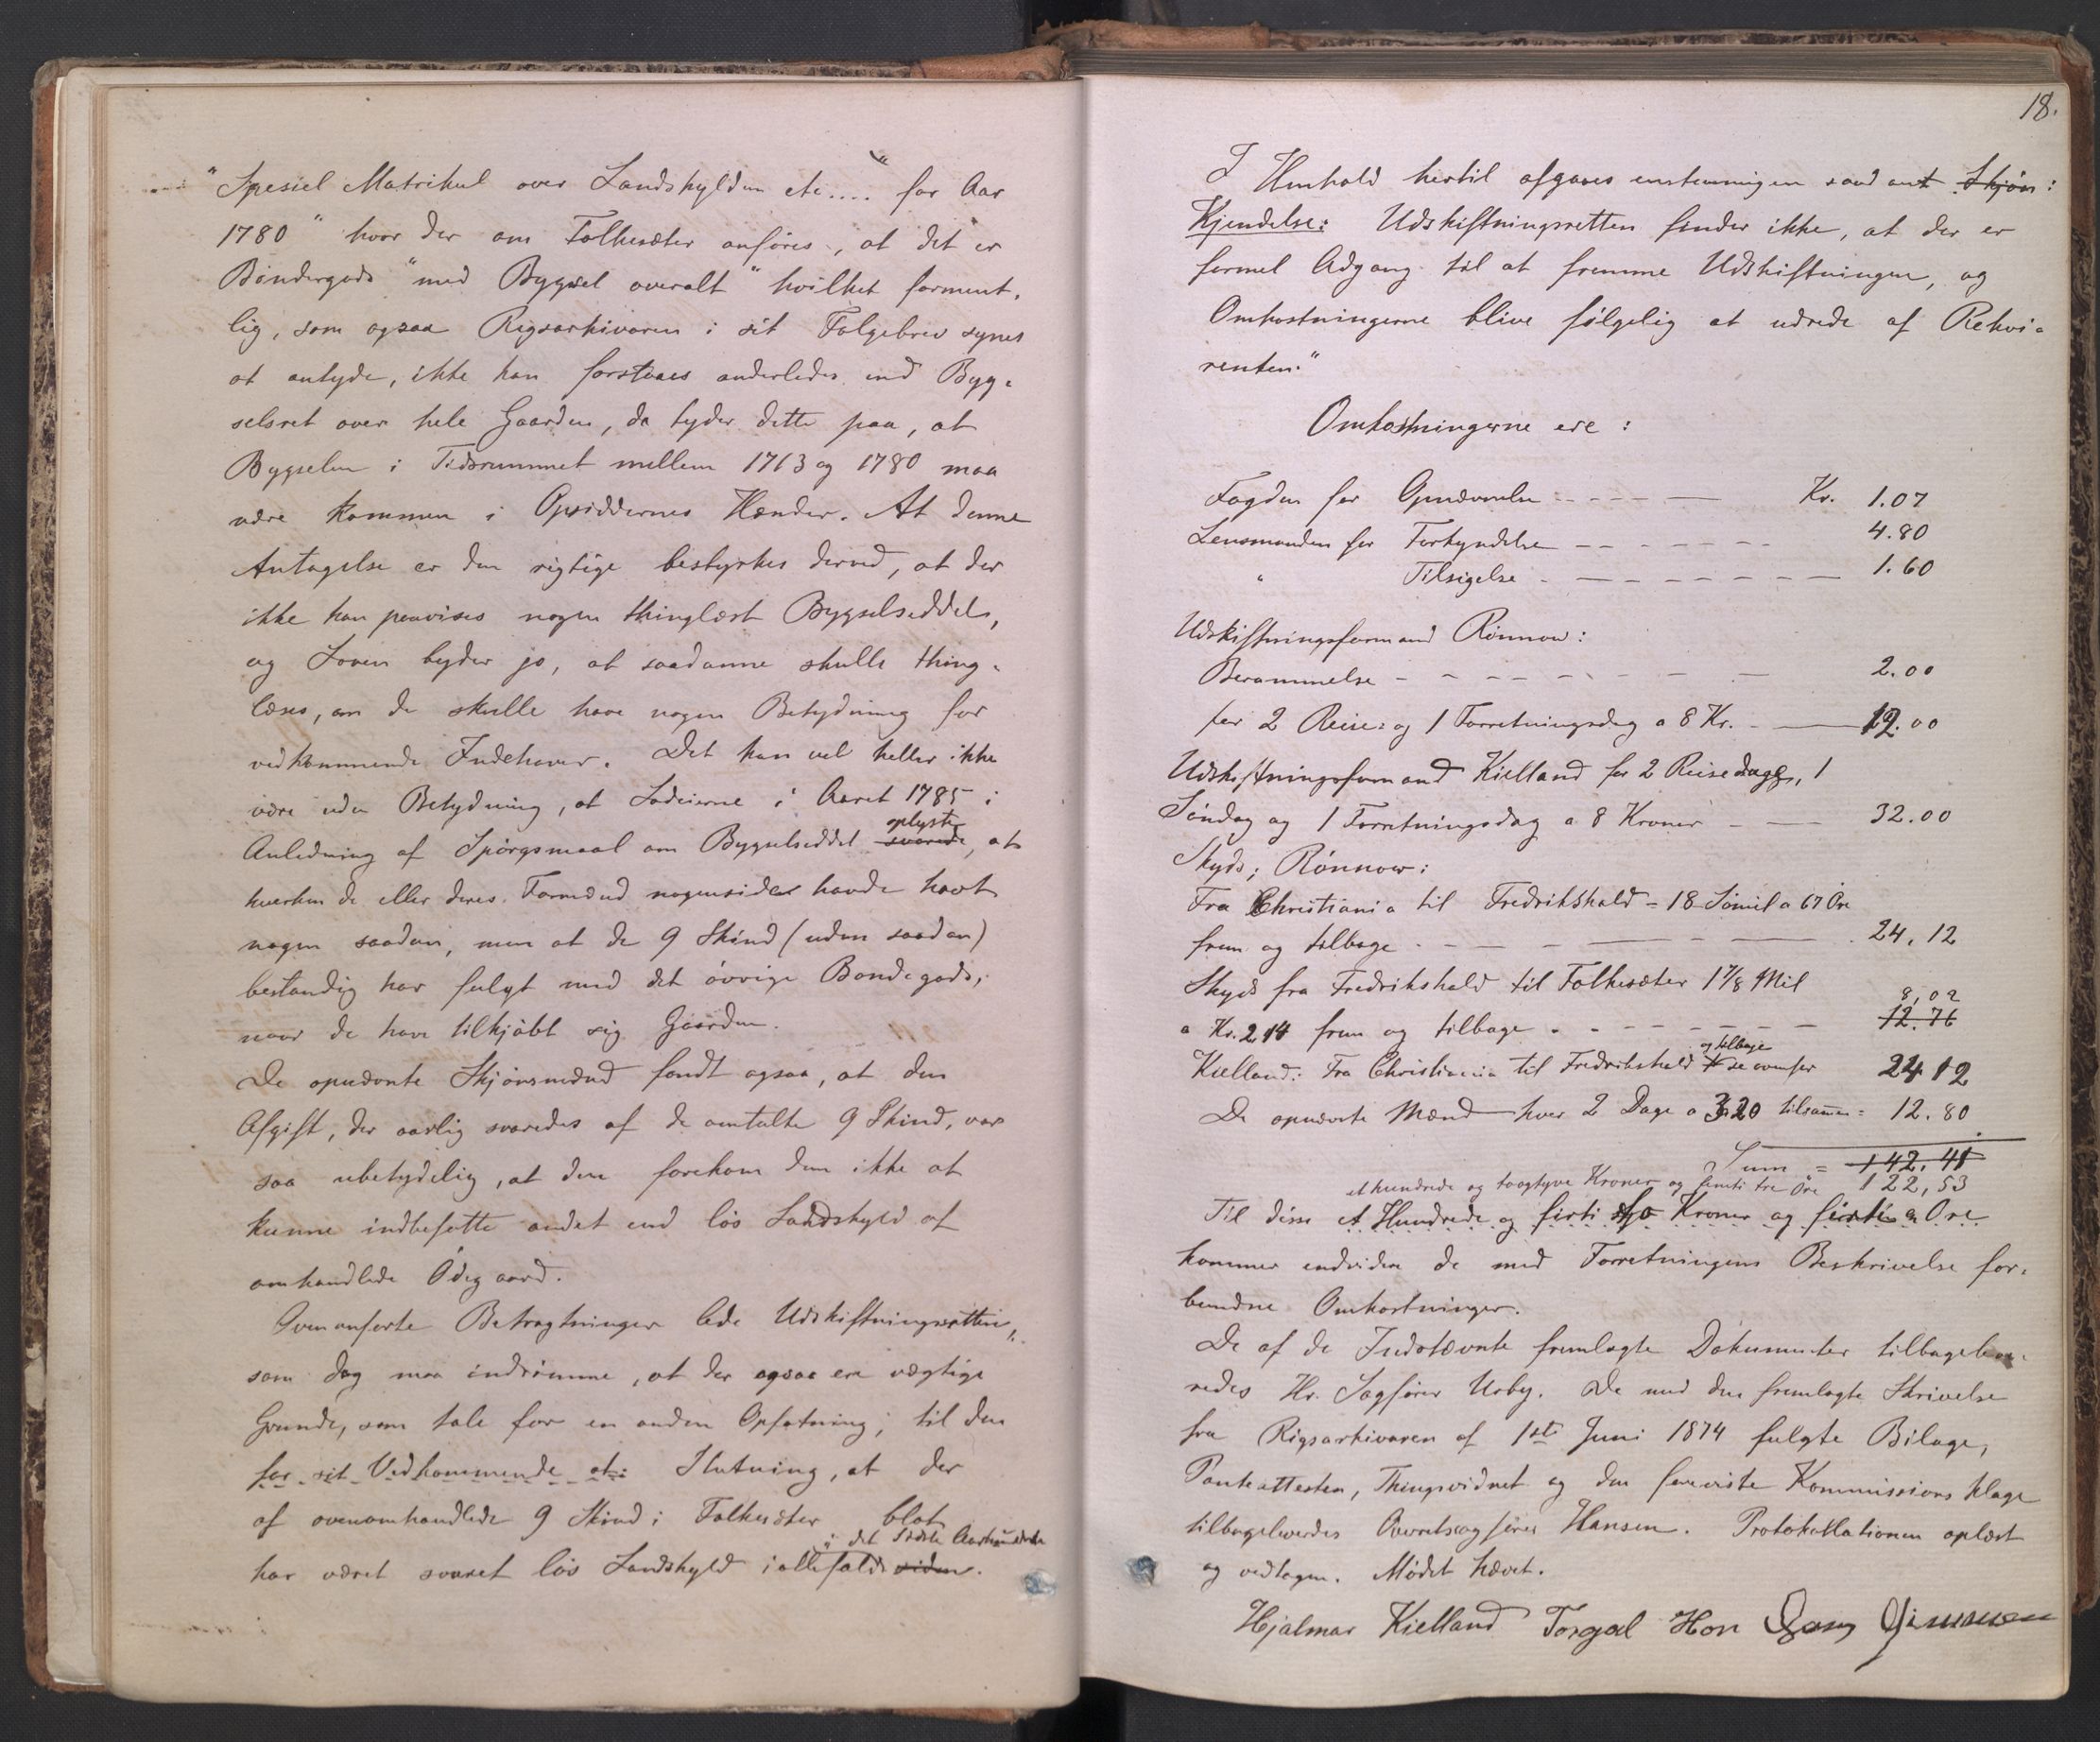 "Spesiel Matrikul over Landskylden etc.... " for Aar
1780" hvor der om Folkesæter anføres, at det er
Bøndergods "med Bygsel overalt" hvilket forment-
lig, som ogsaa Rigsarkivaren i sit Følgebrev synes
at antyde, ikke kan forstaaes anderledes end Byg-
selsret over hele Gaarden, da tyder dette paa, at
Bygselen i Tidsrummet mellem 1713 og 1780 maa
være kommen i Opsiddernes Hænder. At denne
Antagelse er den rigtige bestyrkes derved, at der
ikke kan paavises nogen thinglæst Bygselseddel,
og Loven byder jo, at saadanne skulle thing-
læses, om de skulle have nogen Betydning for
vedkommende Indehaver. Det kan vel heller ikke
være uden Betydning, at Lodeierne i Aaret 1785 i
Anledning af Spørgsmaal om Bygselseddel svarede oplyste, at
hverken de eller deres Formænd nogensinde havde havt
nogen saadan, men at de 9 Skind (uden saadan)
bestandig har fulgt med det øvrige Bondegods,
naar de have tilkjøbt sig Gaarden.
De opnævnte Skjønsmænd fandt ogsaa, at den
Afgift, der aarlig svaredes af de omtalte 9 Skind, var
saa ubetydelig, at den forekom dem ikke at
kunne indbefatte andet end løs Landskyld af
omhandlede Ødegaard.
Ovenanførte Betragtninger lede Udskiftningsretten,
som dog maa indrømme, at der ogsaa ere vægtige
Grunde, som tale for en anden Opfatning, til den
for sit Vedkommende at: Slutning, at der
af ovenomhandlede 9 Skind i Folkesæter blot
har været svaret løs Landskyld i allefald siden. i det sidste Aarhundrede
18.
I Henhold hertil afgaves enstemmigen saadant Skjøn:
Kjendelse: Udskiftningsretten finder ikke, at der er
formel Adgang til at fremme Udskiftningen, og
Omkostningerne blive følgelig at udrede af Rekvi-
renten."
Omkostningerne ere:
Fogden for Opnævnelse - - - - Kr. 1.07
Lensmanden for Forkyndelse - - - - 4.80
" Tilsigelse - - - - 1.60
Udskiftningsformand Rönnow:
Berammelse - - - - 2.00
for 2 Reise- og 1 Forretningsdag a 8 Kr. - 12.00
Udskiftningsformand Kielland for 2 Reisedage, 1
Søndag og 1 Forretningsdag a 8 Kroner - 32.00
Skyds; Rönnow:
Fra Christiania til Fredrikshald = 18 Sömil a 67 Öre
frem og tilbage - - - - 24.12
Skyds fra Fredrikshald til Folkesæter 1 7/8 Mil
a Kr. 2.14 frem og tilbage - - - - 12.76 8,02
Kielland: Fra Christiania til Fredrikshald og tilbage se ovenfor 24 12
De opnævnte Mænd hver 2 Dage a 3.20 tilsammen = 12.80
Sum = 142.41
et hundrede og toogtyve Kroner og femti tre Øre 122,53
Til disse et Hundrede og firti to Kroner og firti en Øre
kommer endvidere de med Forretningens Beskrivelse for-
bundne Omkostninger.
De af de Indstævnte fremlagte Dokumenter tilbageleve-
redes Hr. Sagfører Urby. De med den fremlagte Skrivelse
fra Rigsarkivaren af 1ste Juni 1874 fulgte Bilage,
Panteattesten, Thingsvidnet og den foreviste Kommissions klage
tilbageleverdes Overretssagfører Hansen. Protokollationen oplæst
og vedtagen. Mødet hævet.
Hjalmar Kielland Torgal Hon